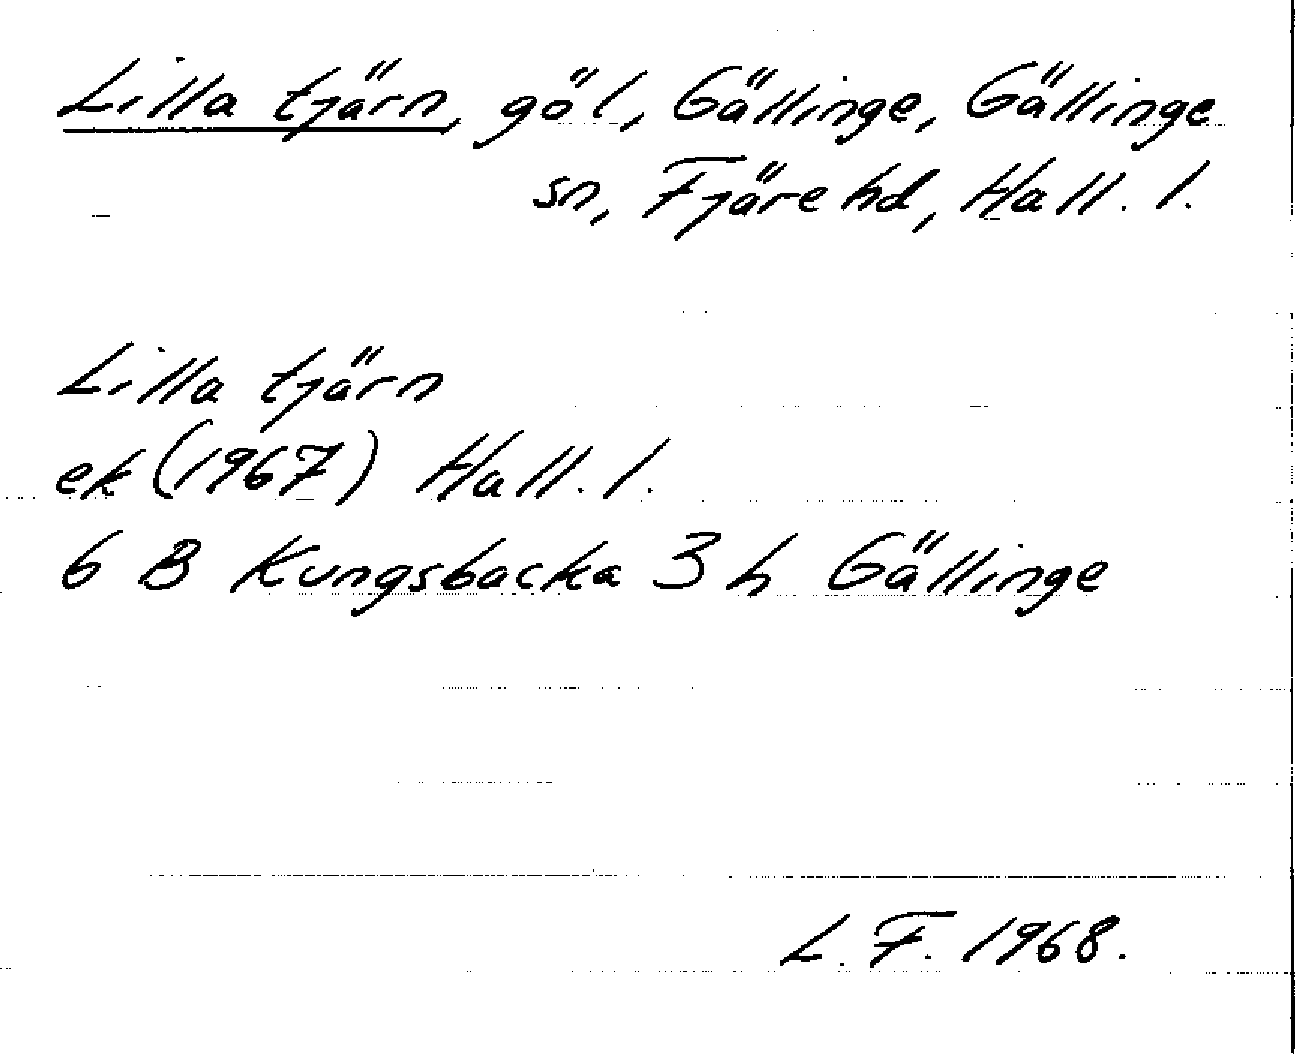 Lilla tjärn, göl, Gällinge, Gällinge
sn, Fjäre hd, Hall. l.
Lilla tjärn
ek (1967) Hall. l.
6 B Kungsbacka 3 h Gällinge
L. F. 1968.